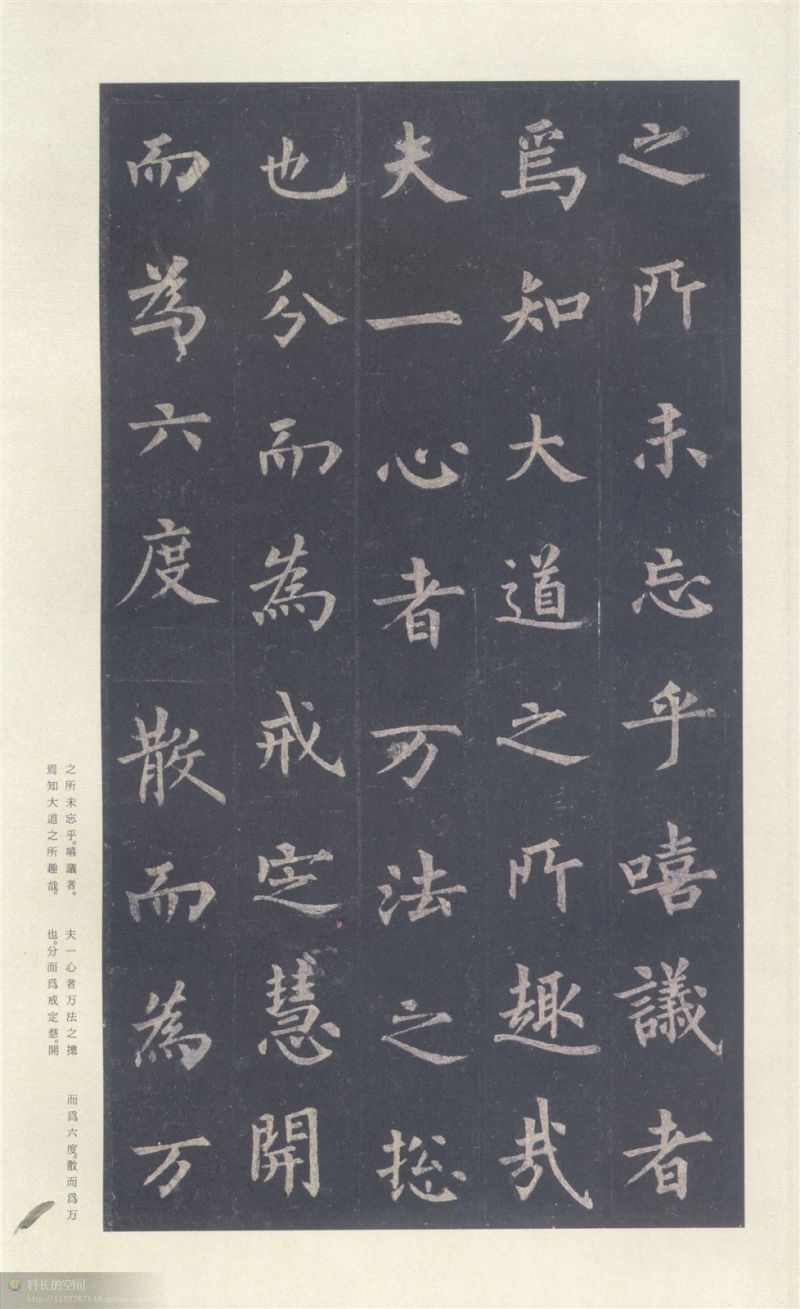 之所未忘乎嘻議者
焉知大道之所趣哉
夫一心者万法之揔
也分而為戒定慧開
而為六度散而為万
之所未忘乎。嘻議者。
焉知大道之所趣哉。
夫一心者万法之揔
也。分而爲戒定慧。開
而爲六度。散而爲万
科长的空间